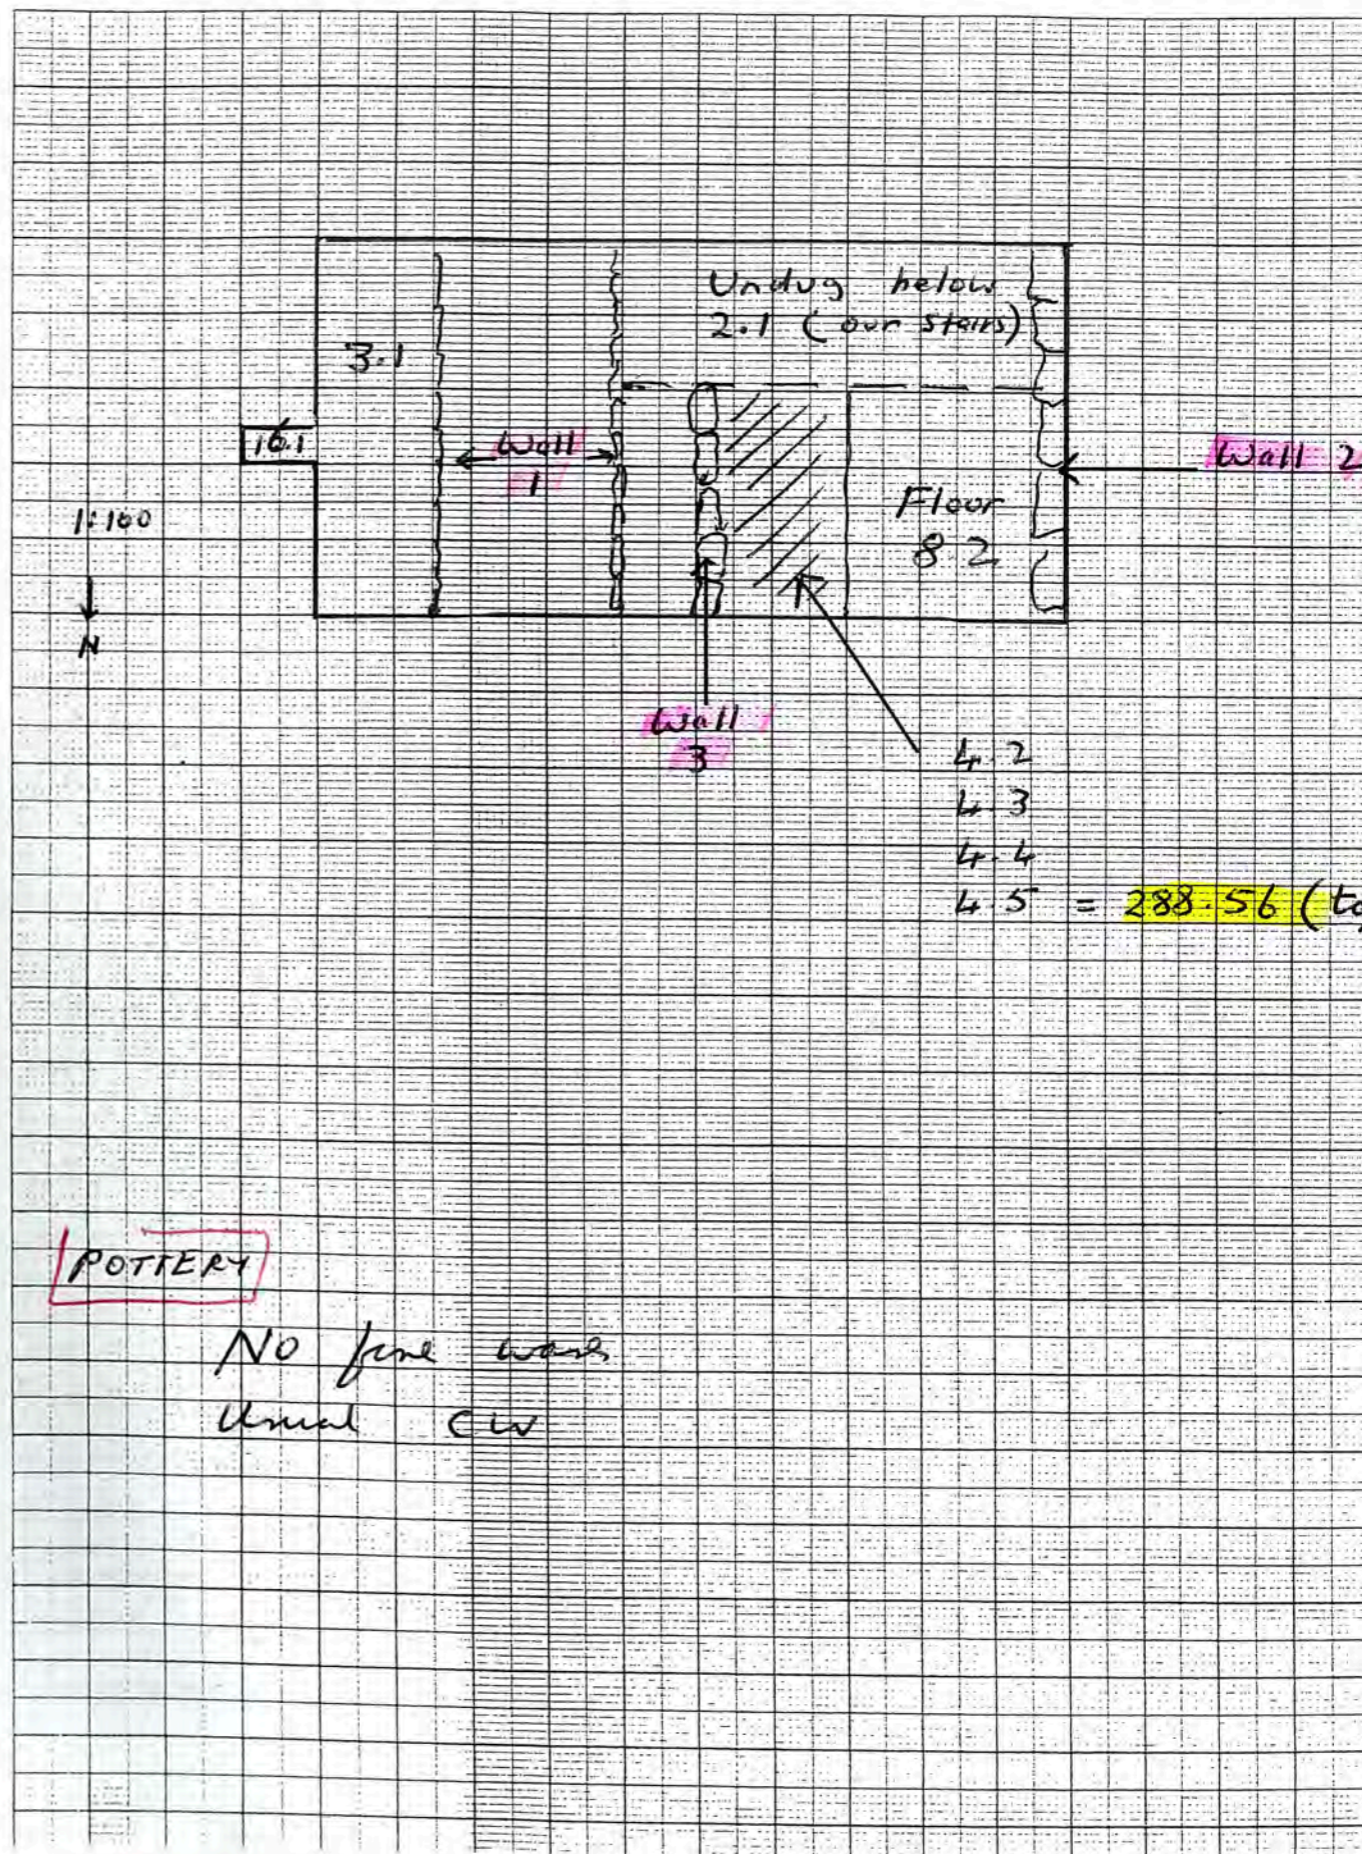 Undug below
2.1 (our stairs)
3.1
16.1
Wall
1
Wall 2
Floor
8.2
1:100
N
Wall
3
4.2
4.3
4.4
4.5 = 288.56 (to
POTTERY
No fine wares
Usual CW